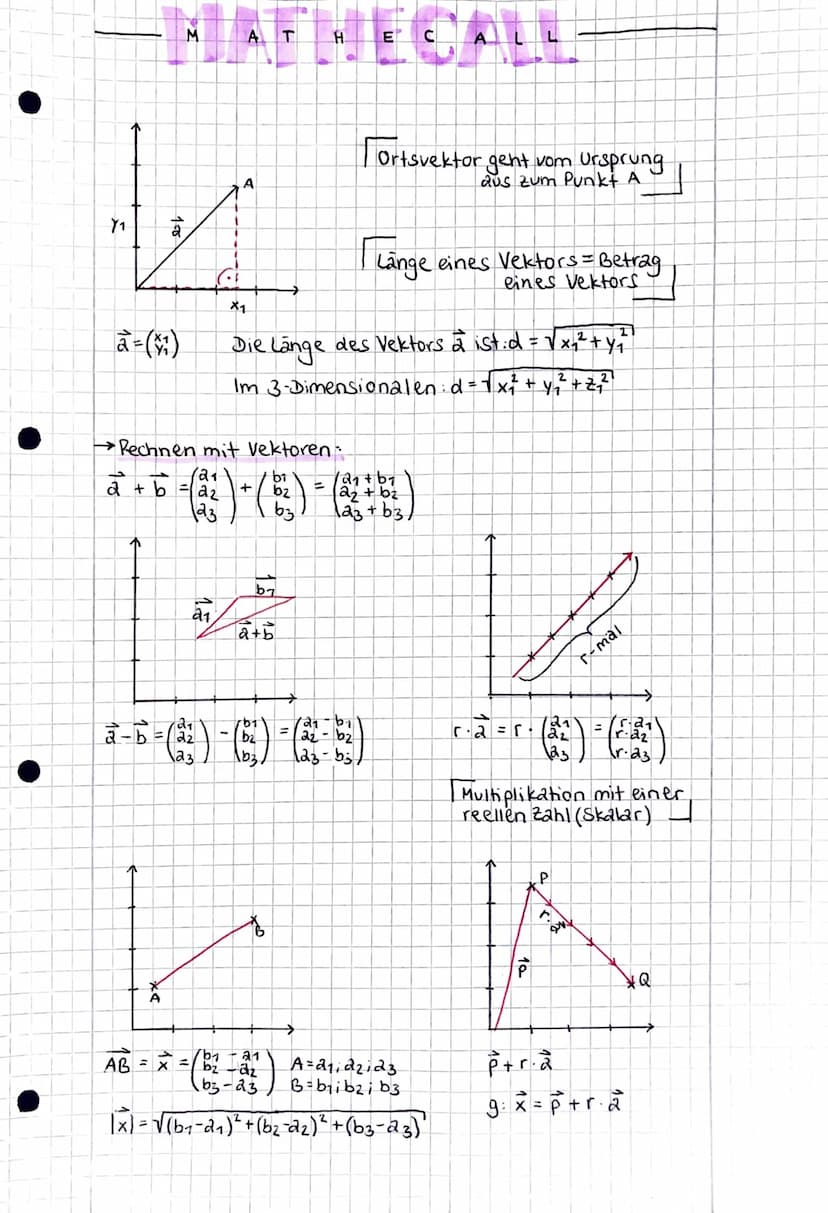 MATHECALL
A
Y1
a⃗
x1
Ortsvektor geht vom Ursprung
aus zum Punkt A
Länge eines Vektors = Betrag
eines Vektors
a⃗ = (x1 y1)
Die Länge des Vektors a⃗ ist: d = √x1² + y1²
Im 3-Dimensionalen: d = √x1² + y1² + z1²
→ Rechnen mit Vektoren:
a⃗ + b⃗ = (a1 a2 a3) + (b1 b2 b3) = (a1 + b1 a2 + b2 a3 + b3)
b1
a1
a⃗ + b⃗
r-mal
a⃗ - b⃗ = (a1 a2 a3) - (b1 b2 b3) = (a1 - b1 a2 - b2 a3 - b3)
r · a⃗ = r · (a1 a2 a3) = (r·a1 r·a2 r·a3)
Multiplikation mit einer
reellen Zahl (Skalar)
B
A
P
r · a⃗
p⃗
Q
AB = x⃗ = (b1 - a1 b2 - a2 b3 - a3)
A = a1; a2; a3
B = b1; b2; b3
|x⃗| = √(b1-a1)² + (b2-a2)² + (b3-a3)
p⃗ + r · a⃗
g: x⃗ = p⃗ + r · a⃗